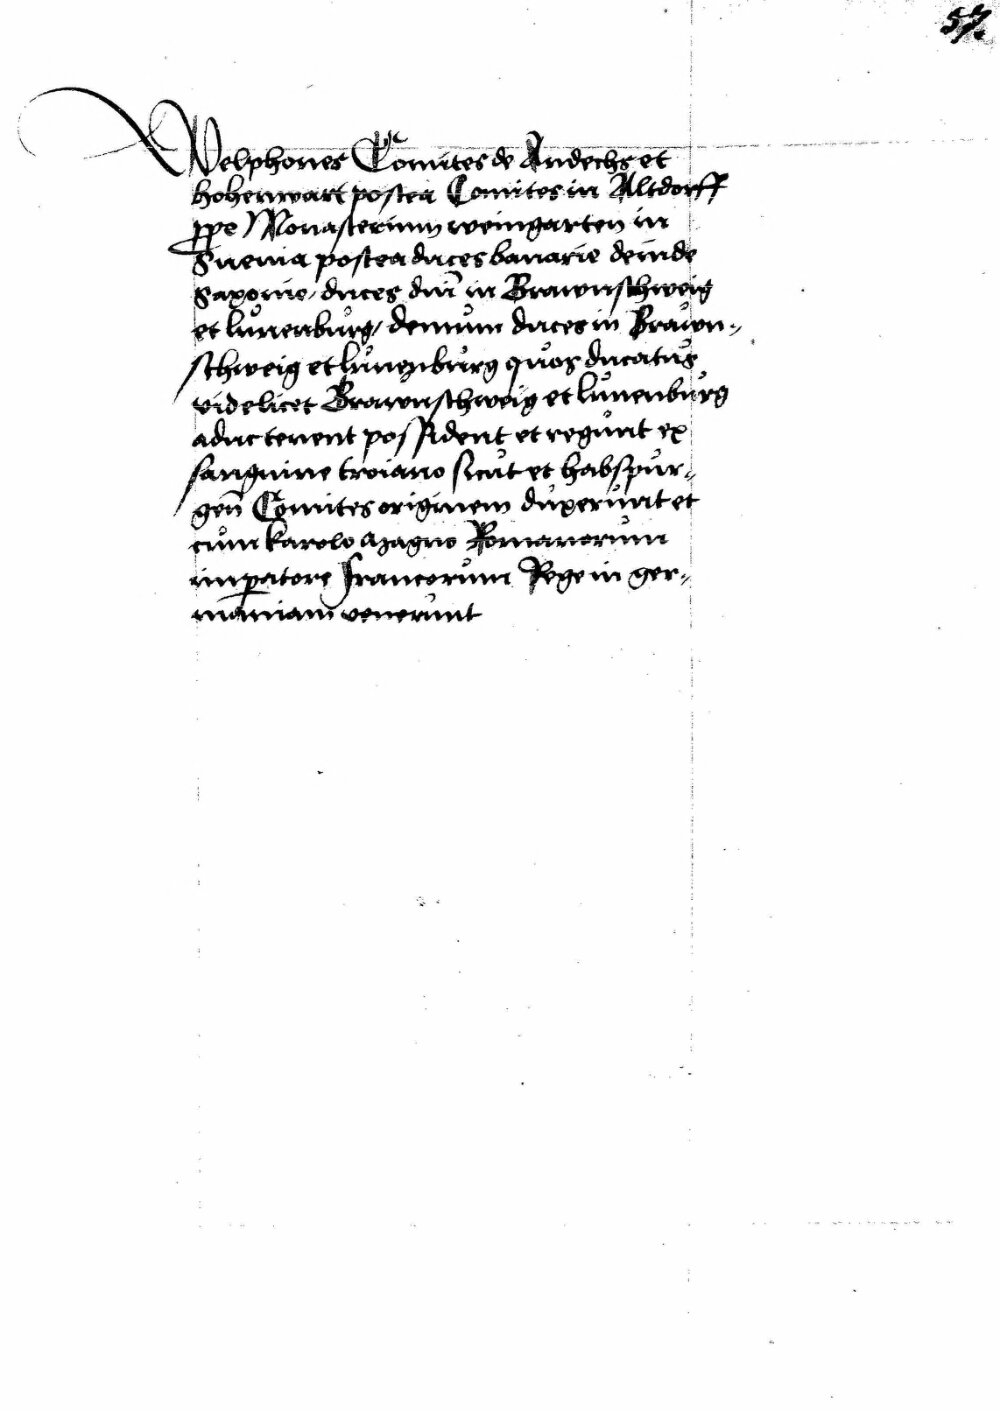 57.
Welphones Comites de Andechs et
hohenwart postea Comites in Altdorff
ꝓpe Monasterium weingarten in
Sueuia postea duces bauarie deinde
Saxonie, duces dni̅ in Brawnschweig
et lůnenbůrg, demum duces in Brawn-
schweig et lůnenbůrg quos ducatus
videlicet Brawnschweig et lůnenbůrg
aduc tenent possident et regunt ex
sanguine troiano sicut et habspur-
gen̅ Comites originem duxerunt et
cum karolo magno Romanorum
imꝑatore francorum Rege in ger-
maniam venerunt